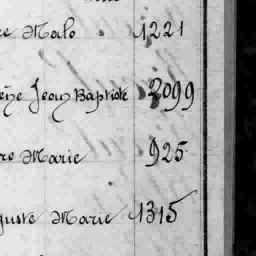 re Malo 1221
Jean Baptiste 2099
ro Marie 925
guste Marie 1315